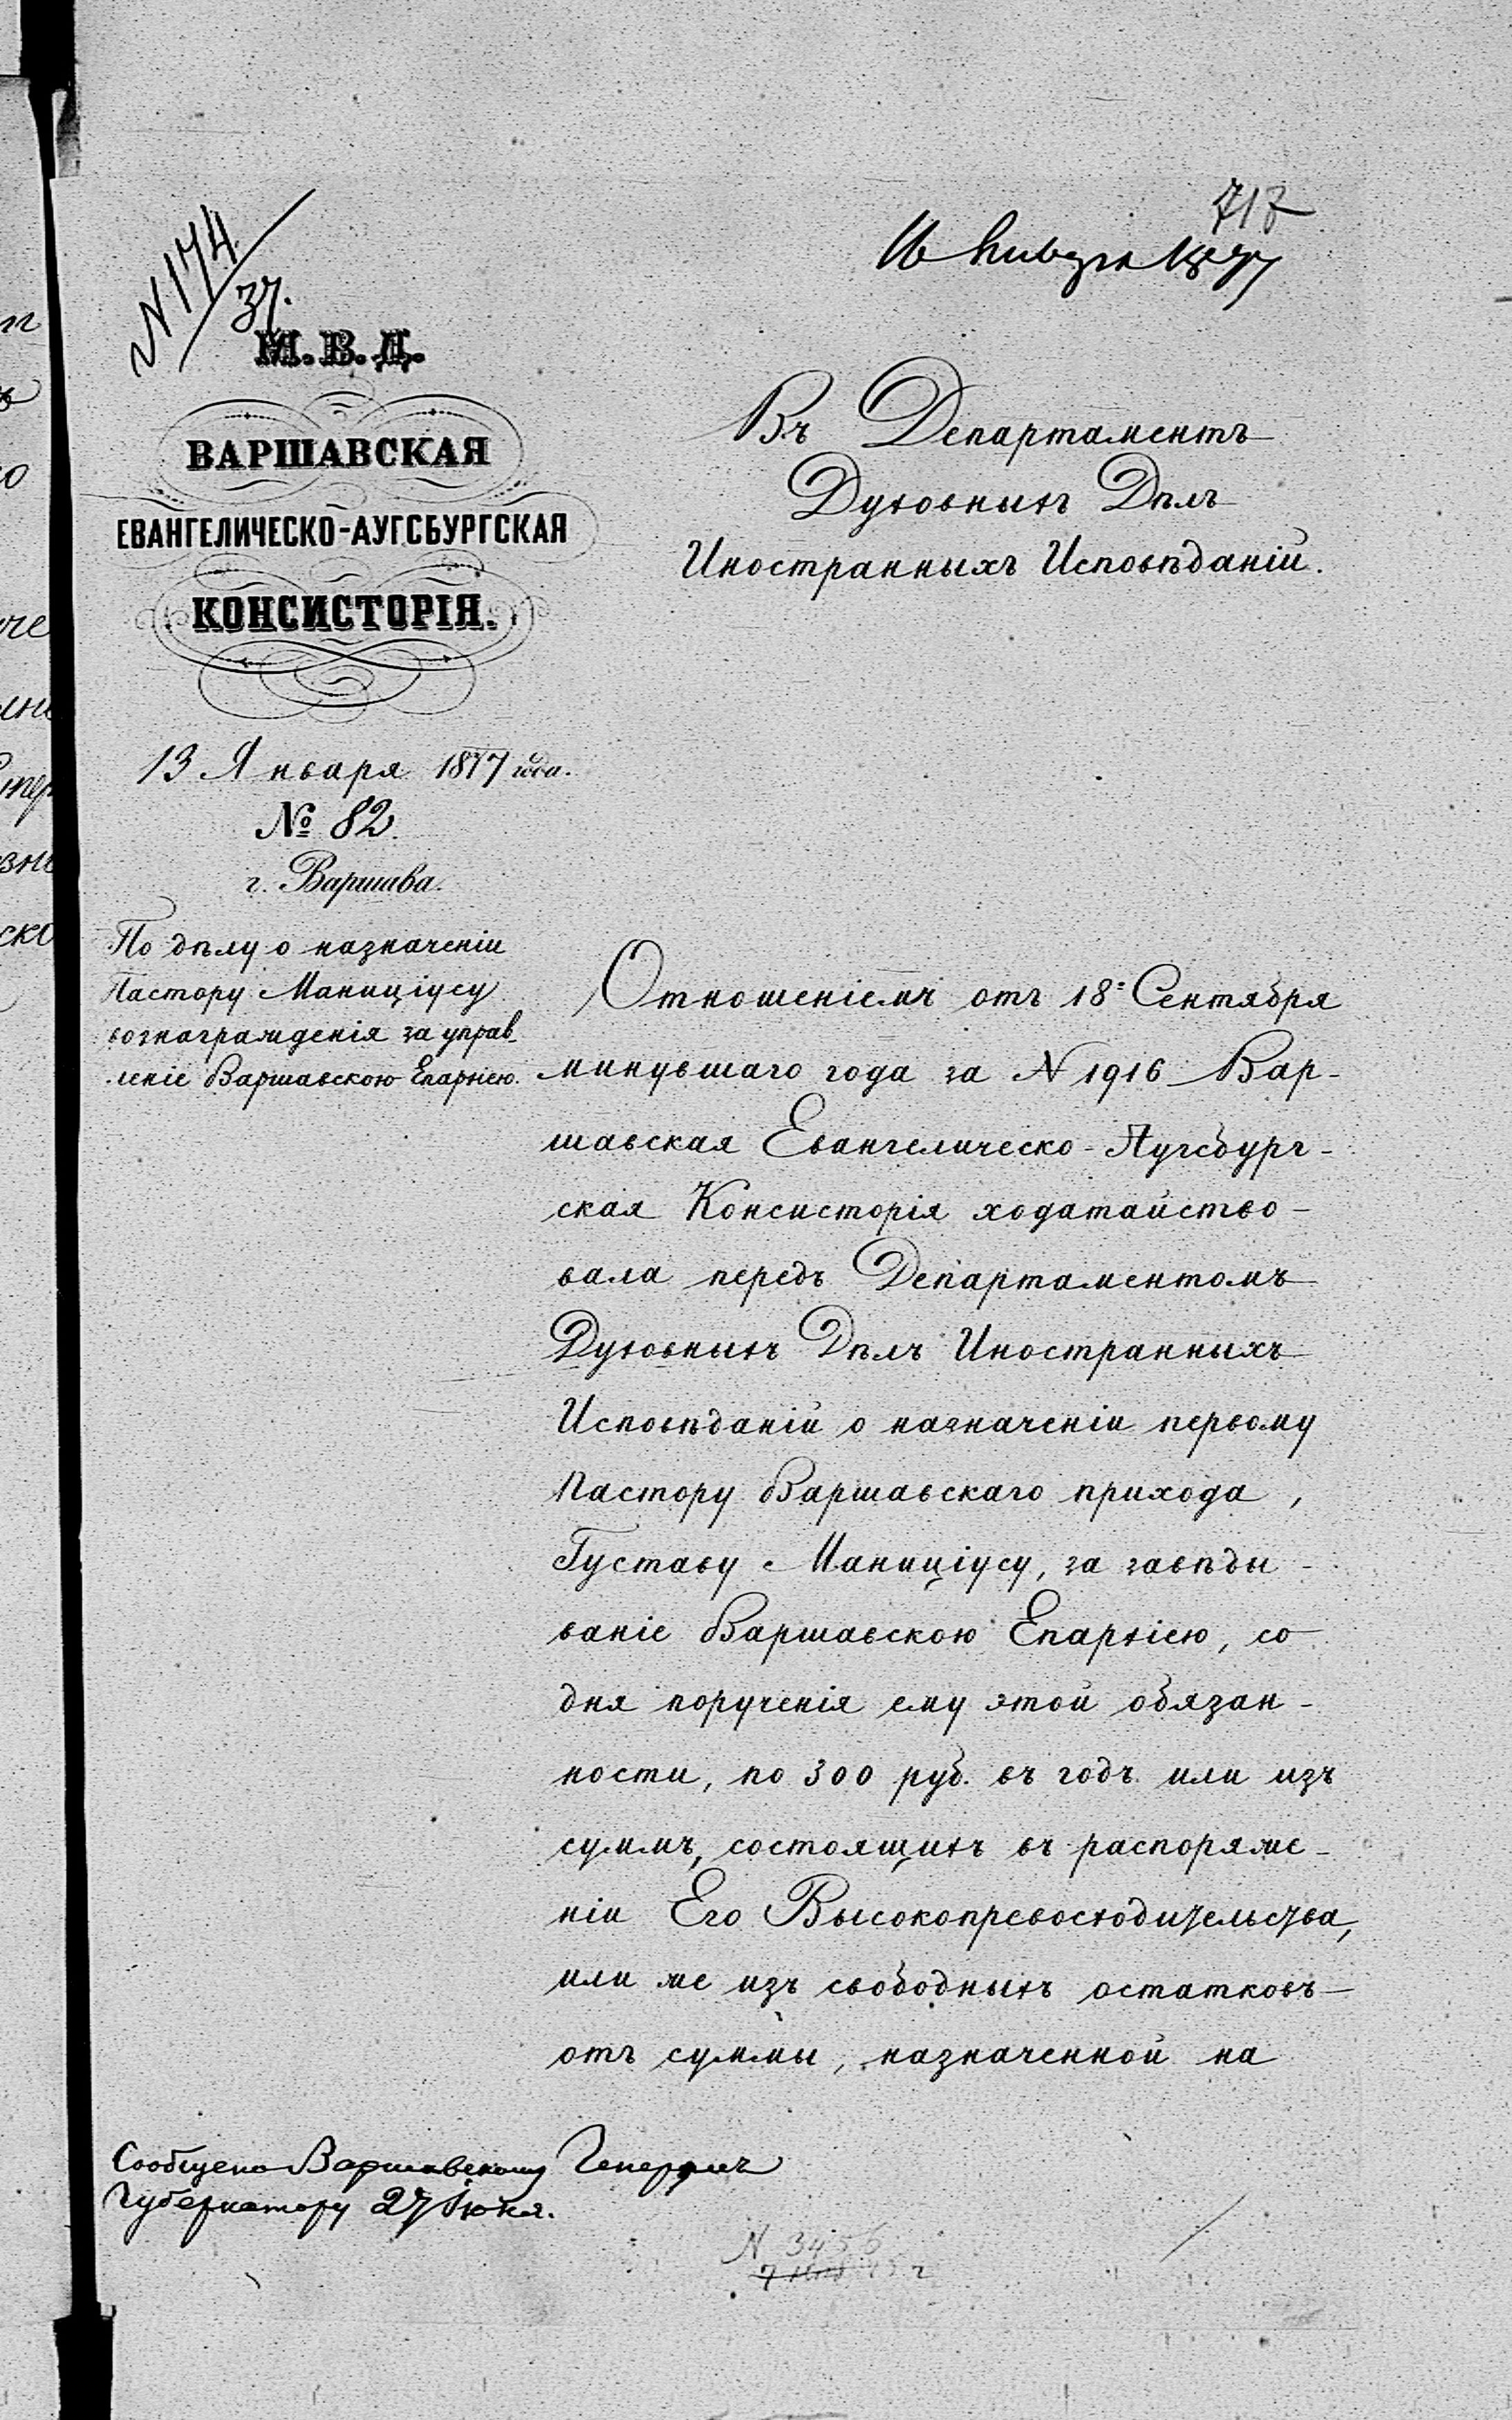 717
16 Января 1877
N 174
37.
М.В.Д.
ВАРШАВСКАЯ
ЕВАНГЕЛИЧЕСКО-АУГСБУРГСКАЯ
КОНСИСТОРІЯ.
13 Января 1877 года.
№ 82.
г. Варшава.
По дѣлу о назначеніи
Пастору Маниціусу
вознагражденія за управ-
леніе Варшавскою Епархіею.
Въ Департаментъ
Духовныхъ Дѣлъ
Иностранныхъ Исповѣданій.
Отношеніемъ отъ 18 Сентября
минувшаго года за N 1916 Вар-
шавская Евангелическо-Аугсбург-
ская Консисторія ходатайство-
вала передъ Департаментомъ
Духовныхъ Дѣлъ Иностранныхъ
Исповѣданій о назначеніи первому
Пастору Варшавскаго прихода,
Густаву Маниціусу, за завѣды-
ваніе Варшавскою Епархіею, со
дня порученія ему этой обязан-
ности, по 300 руб. въ годъ или изъ
суммъ, состоящихъ въ распоряже-
ніи Его Высокопревосходительства,
или же изъ свободныхъ остатковъ
отъ суммы, назначенной на
Сообщено Варшавскому Генералъ
Губернатору 27 Іюня.
N 3456